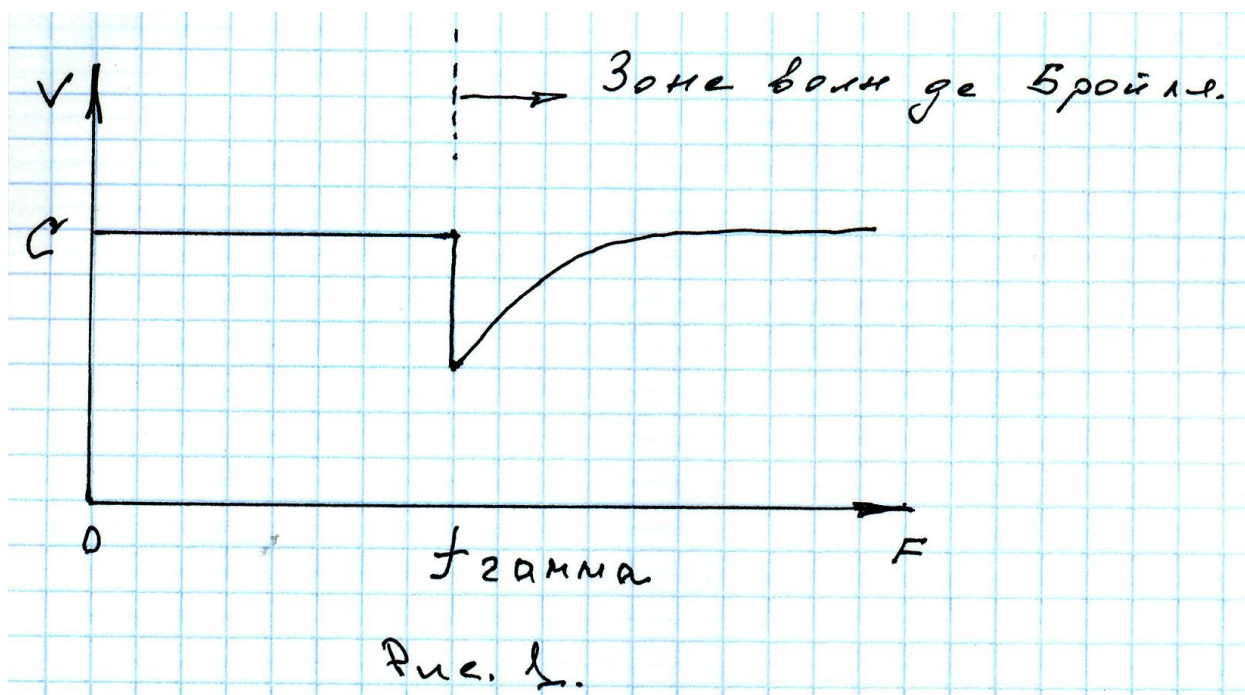 V
Зона волн де Бройля.
C
0
F
f гамма
Рис. 1.